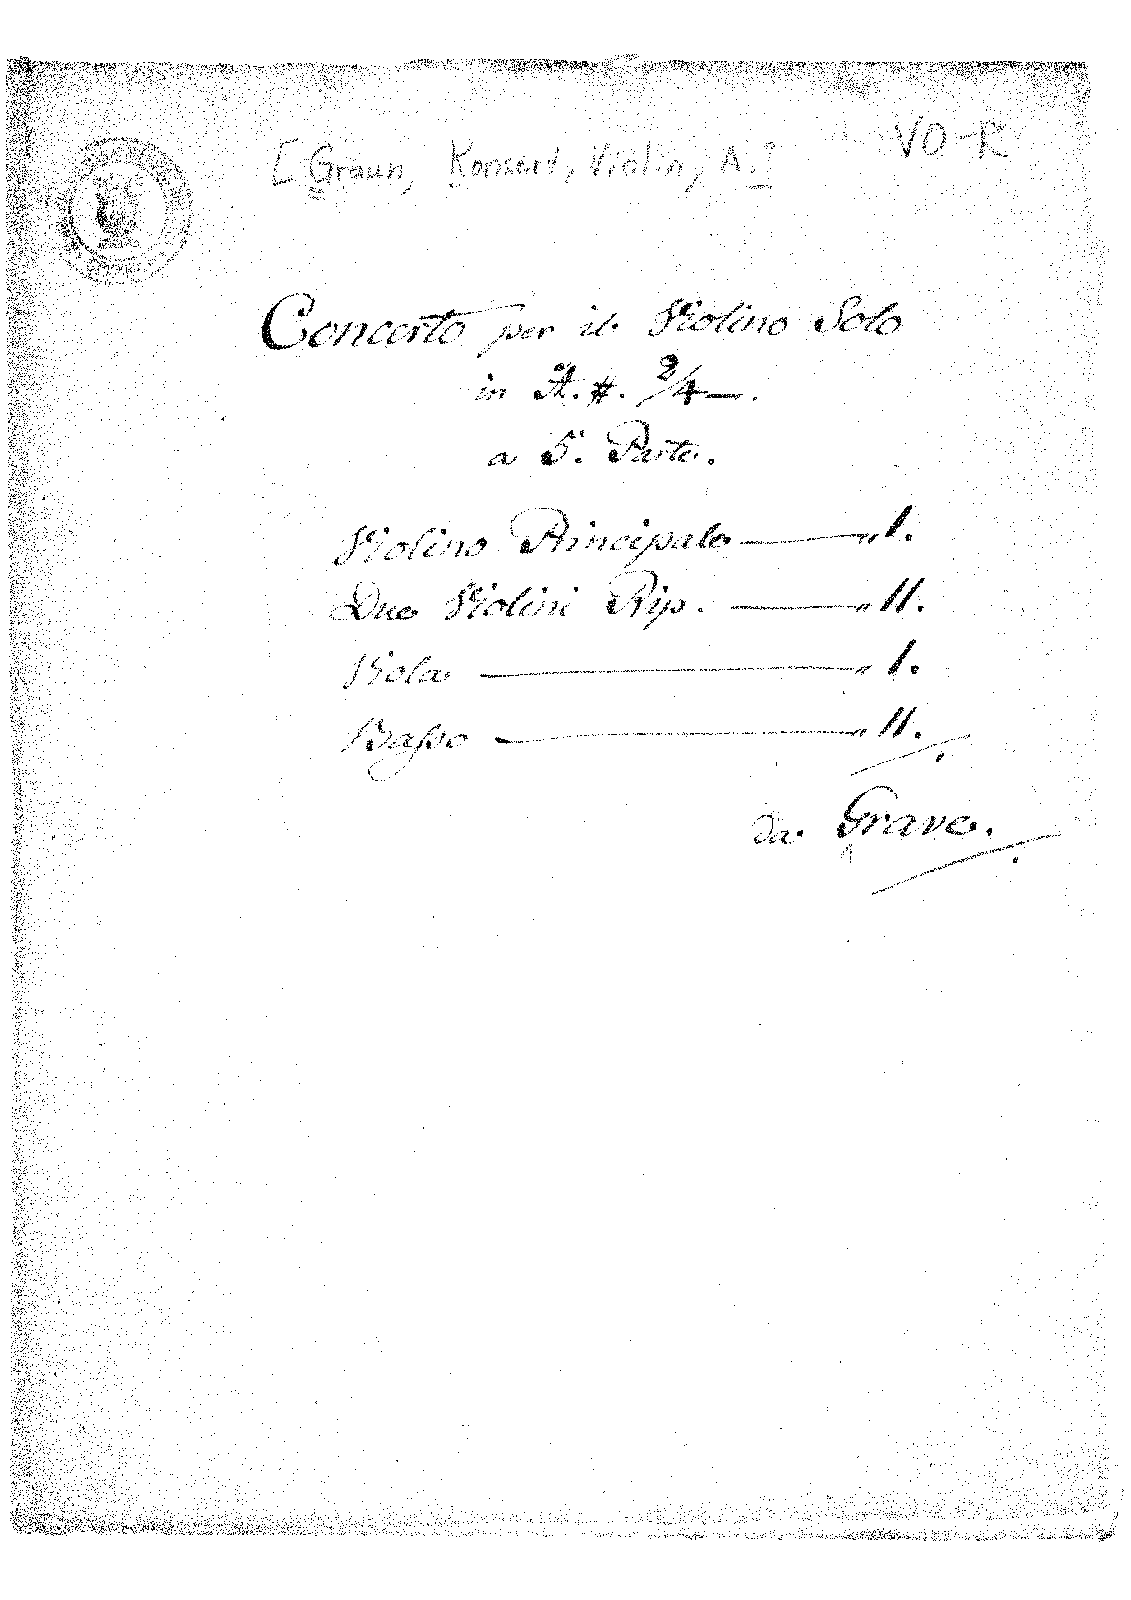 [Graun, Konsert, Violin, A.]
VO-R
Concerto per il Violino Solo
in A. #. 2/4 —.
a 5. Parte.
Violino Principale — „ 1.
Due Violini Rip. — „ 11.
Viola — „ 1.
Basso — „ 11.
da Grave.